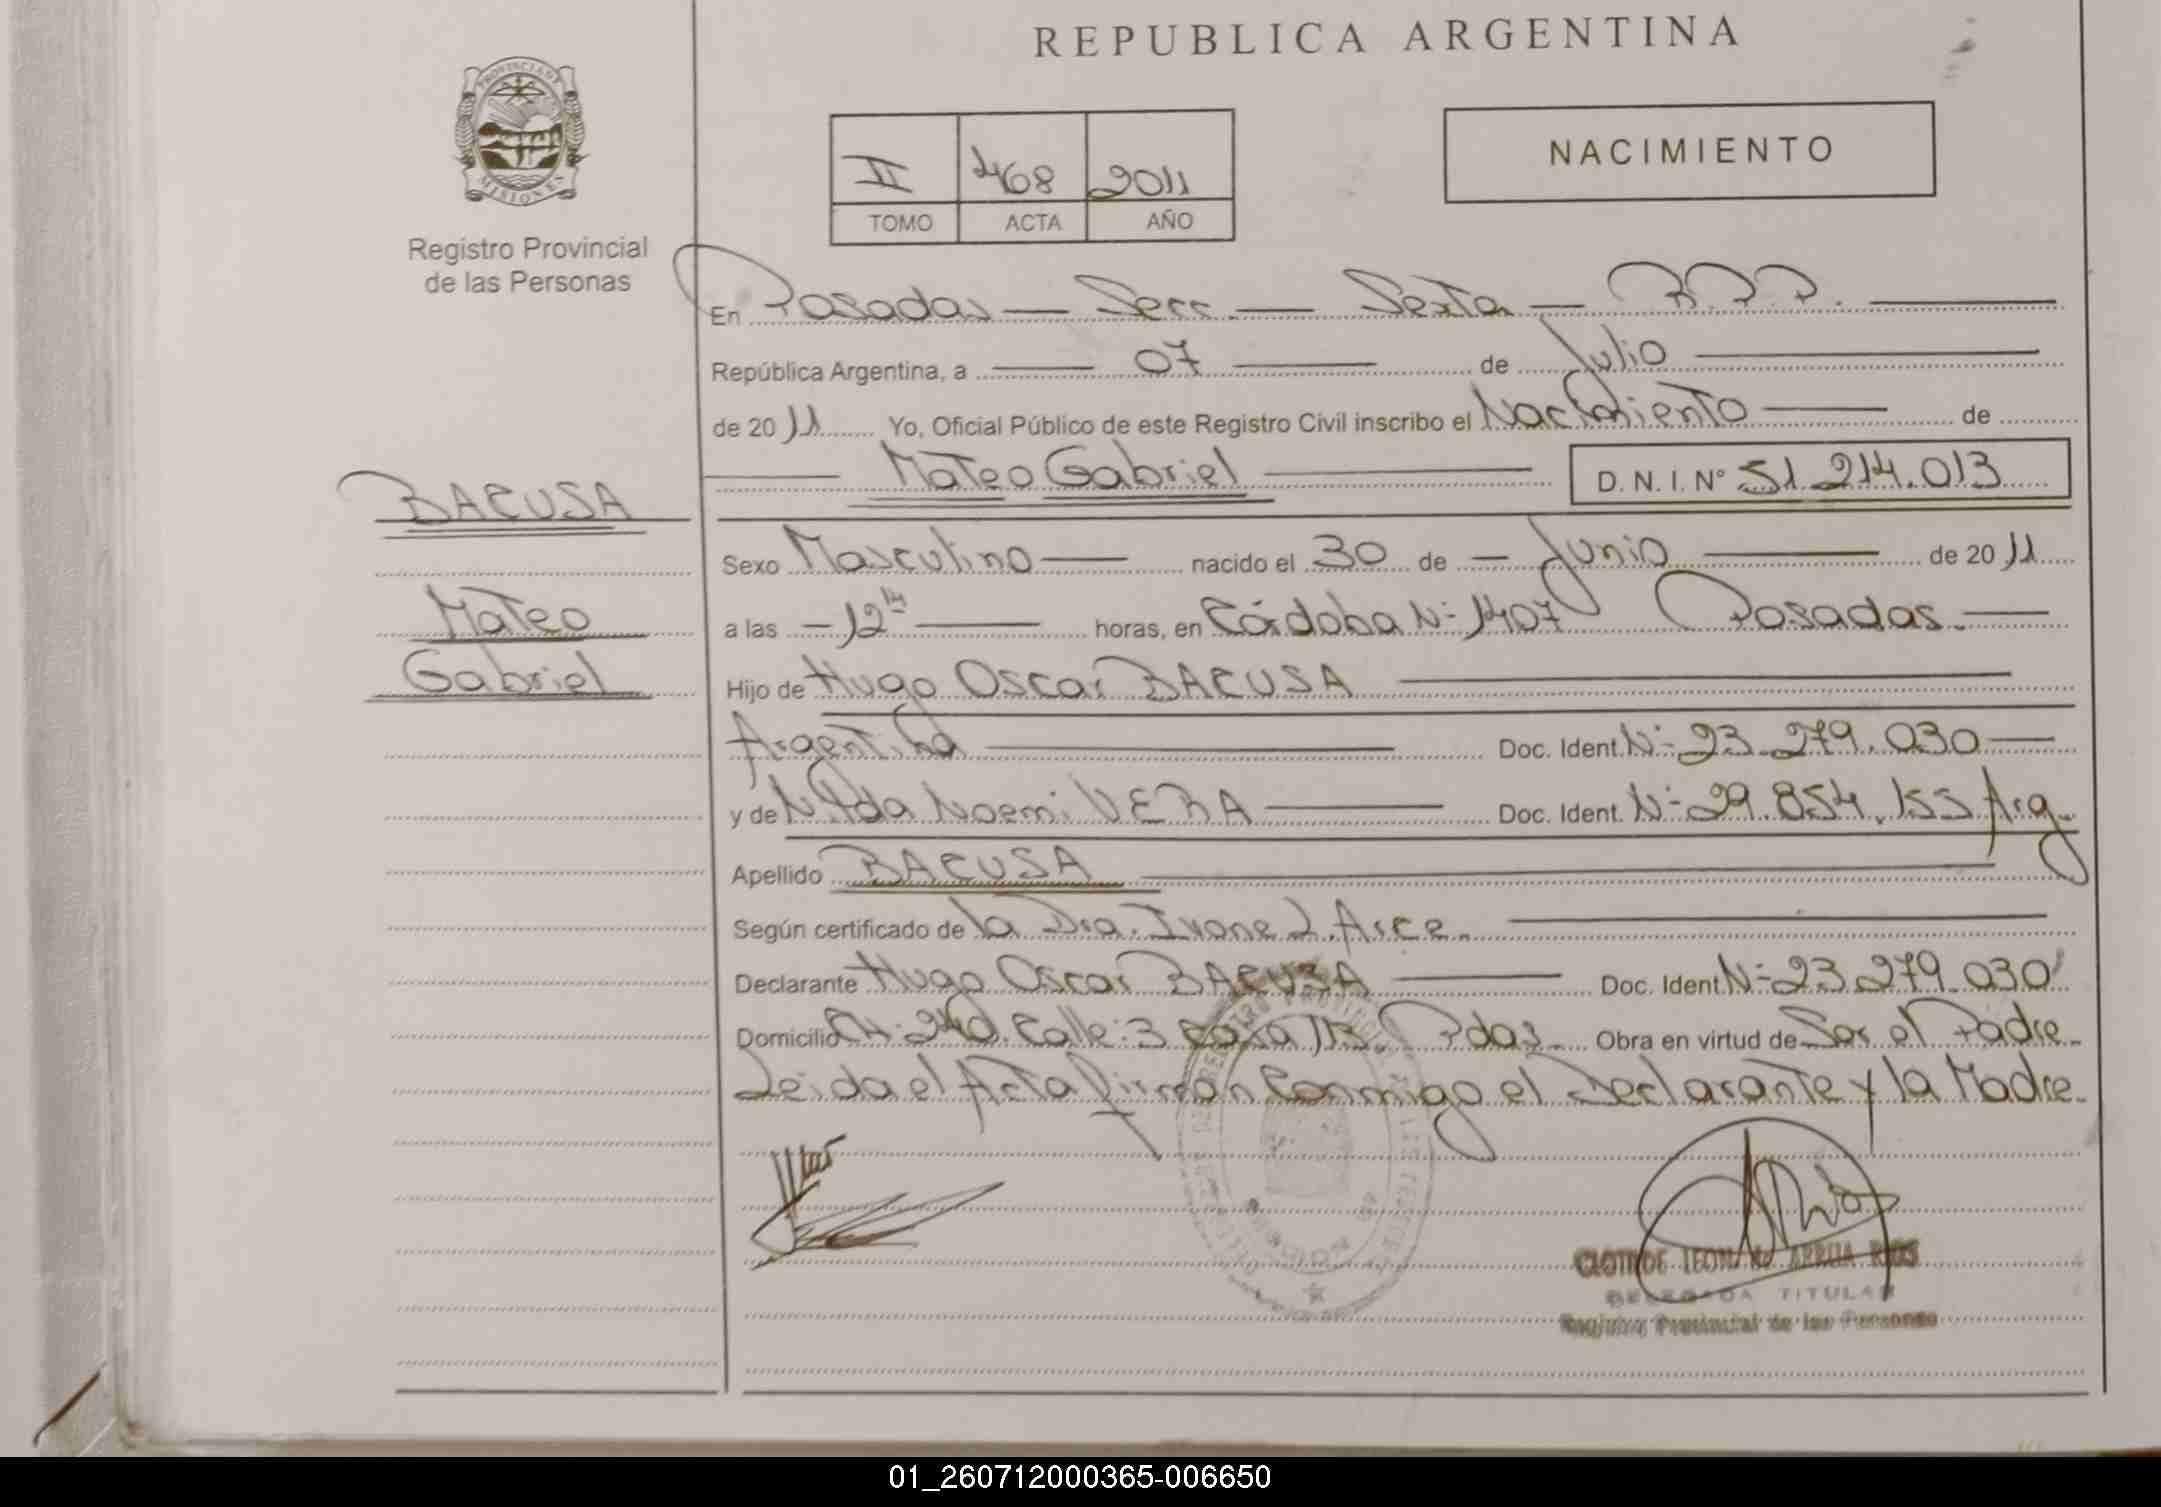 REPUBLICA ARGENTINA
PROVINCIA DE
MISIONES
Registro Provincial
de las Personas
II 468 2011
TOMO ACTA AÑO
NACIMIENTO
En Posadas — Secc. — Sexta — R.P.P. —
República Argentina, a — 07 — de Julio —
de 2011 Yo, Oficial Público de este Registro Civil inscribo el Nacimiento — de
— Mateo Gabriel — D. N. I. Nº 51.214.013
BACUSA
Mateo
Gabriel
Sexo Masculino — nacido el 30 de — Junio — de 2011
a las — 12 — horas, en Córdoba Nº 1407 Posadas. —
Hijo de Hugo Oscar BACUSA —
Argentina — Doc. Ident. Nº 23.279.030 —
y de Nilda Noemi VERA — Doc. Ident. Nº 29.854.155 Arg.
Apellido BACUSA —
Según certificado de la Dra. Ivone L. Arce. —
Declarante Hugo Oscar BACUSA — Doc. Ident. Nº 23.279.030
Domicilio Ch. 240. Calle: 3 casa Pdas. Obra en virtud de Ser el Padre.
Leida el Acta firman Conmigo el Declarante y la Madre.
CLOTILDE LEON de ARRUA RIOS
DELEGADA TITULAR
Registro Provincial de las Personas
01_260712000365-006650